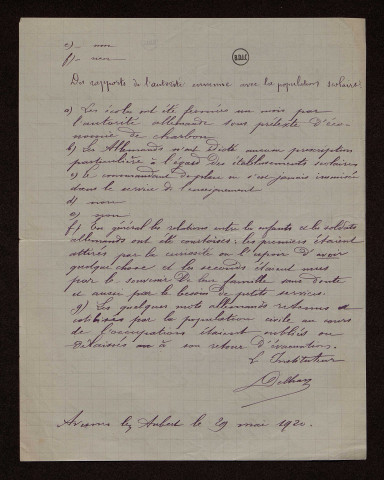 e) - non
f) - rien
B.D.I.C
Des rapports de l'autorité ennemie avec la population scolaire.
a) Les écoles ont été fermées un mois par
l'autorité allemande sous prétexte d'éco-
nomie de charbon
b) Les Allemands n'ont édicté aucune prescription
particulière à l'égard des établissements scolaires
c) le commandant de place ne s'est jamais immiscé
dans le service de l'enseignement
d) non
e) non
f) En général les relations entre les enfants et les soldats
allemands ont été courtoises : les premiers étaient
attirés par la curiosité ou l'espoir d'avoir
quelque chose et les seconds étaient mus
par le souvenir de leur famille sans doute
et aussi par le besoin de petits services.
g) Les quelques mots allemands retenus et
utilisés par la population civile au cours
de l'occupation étaient oubliés ou
délaissés à son retour d'évacuation.
L'Instituteur
Avesnes les Aubert le 29 mai 1920.